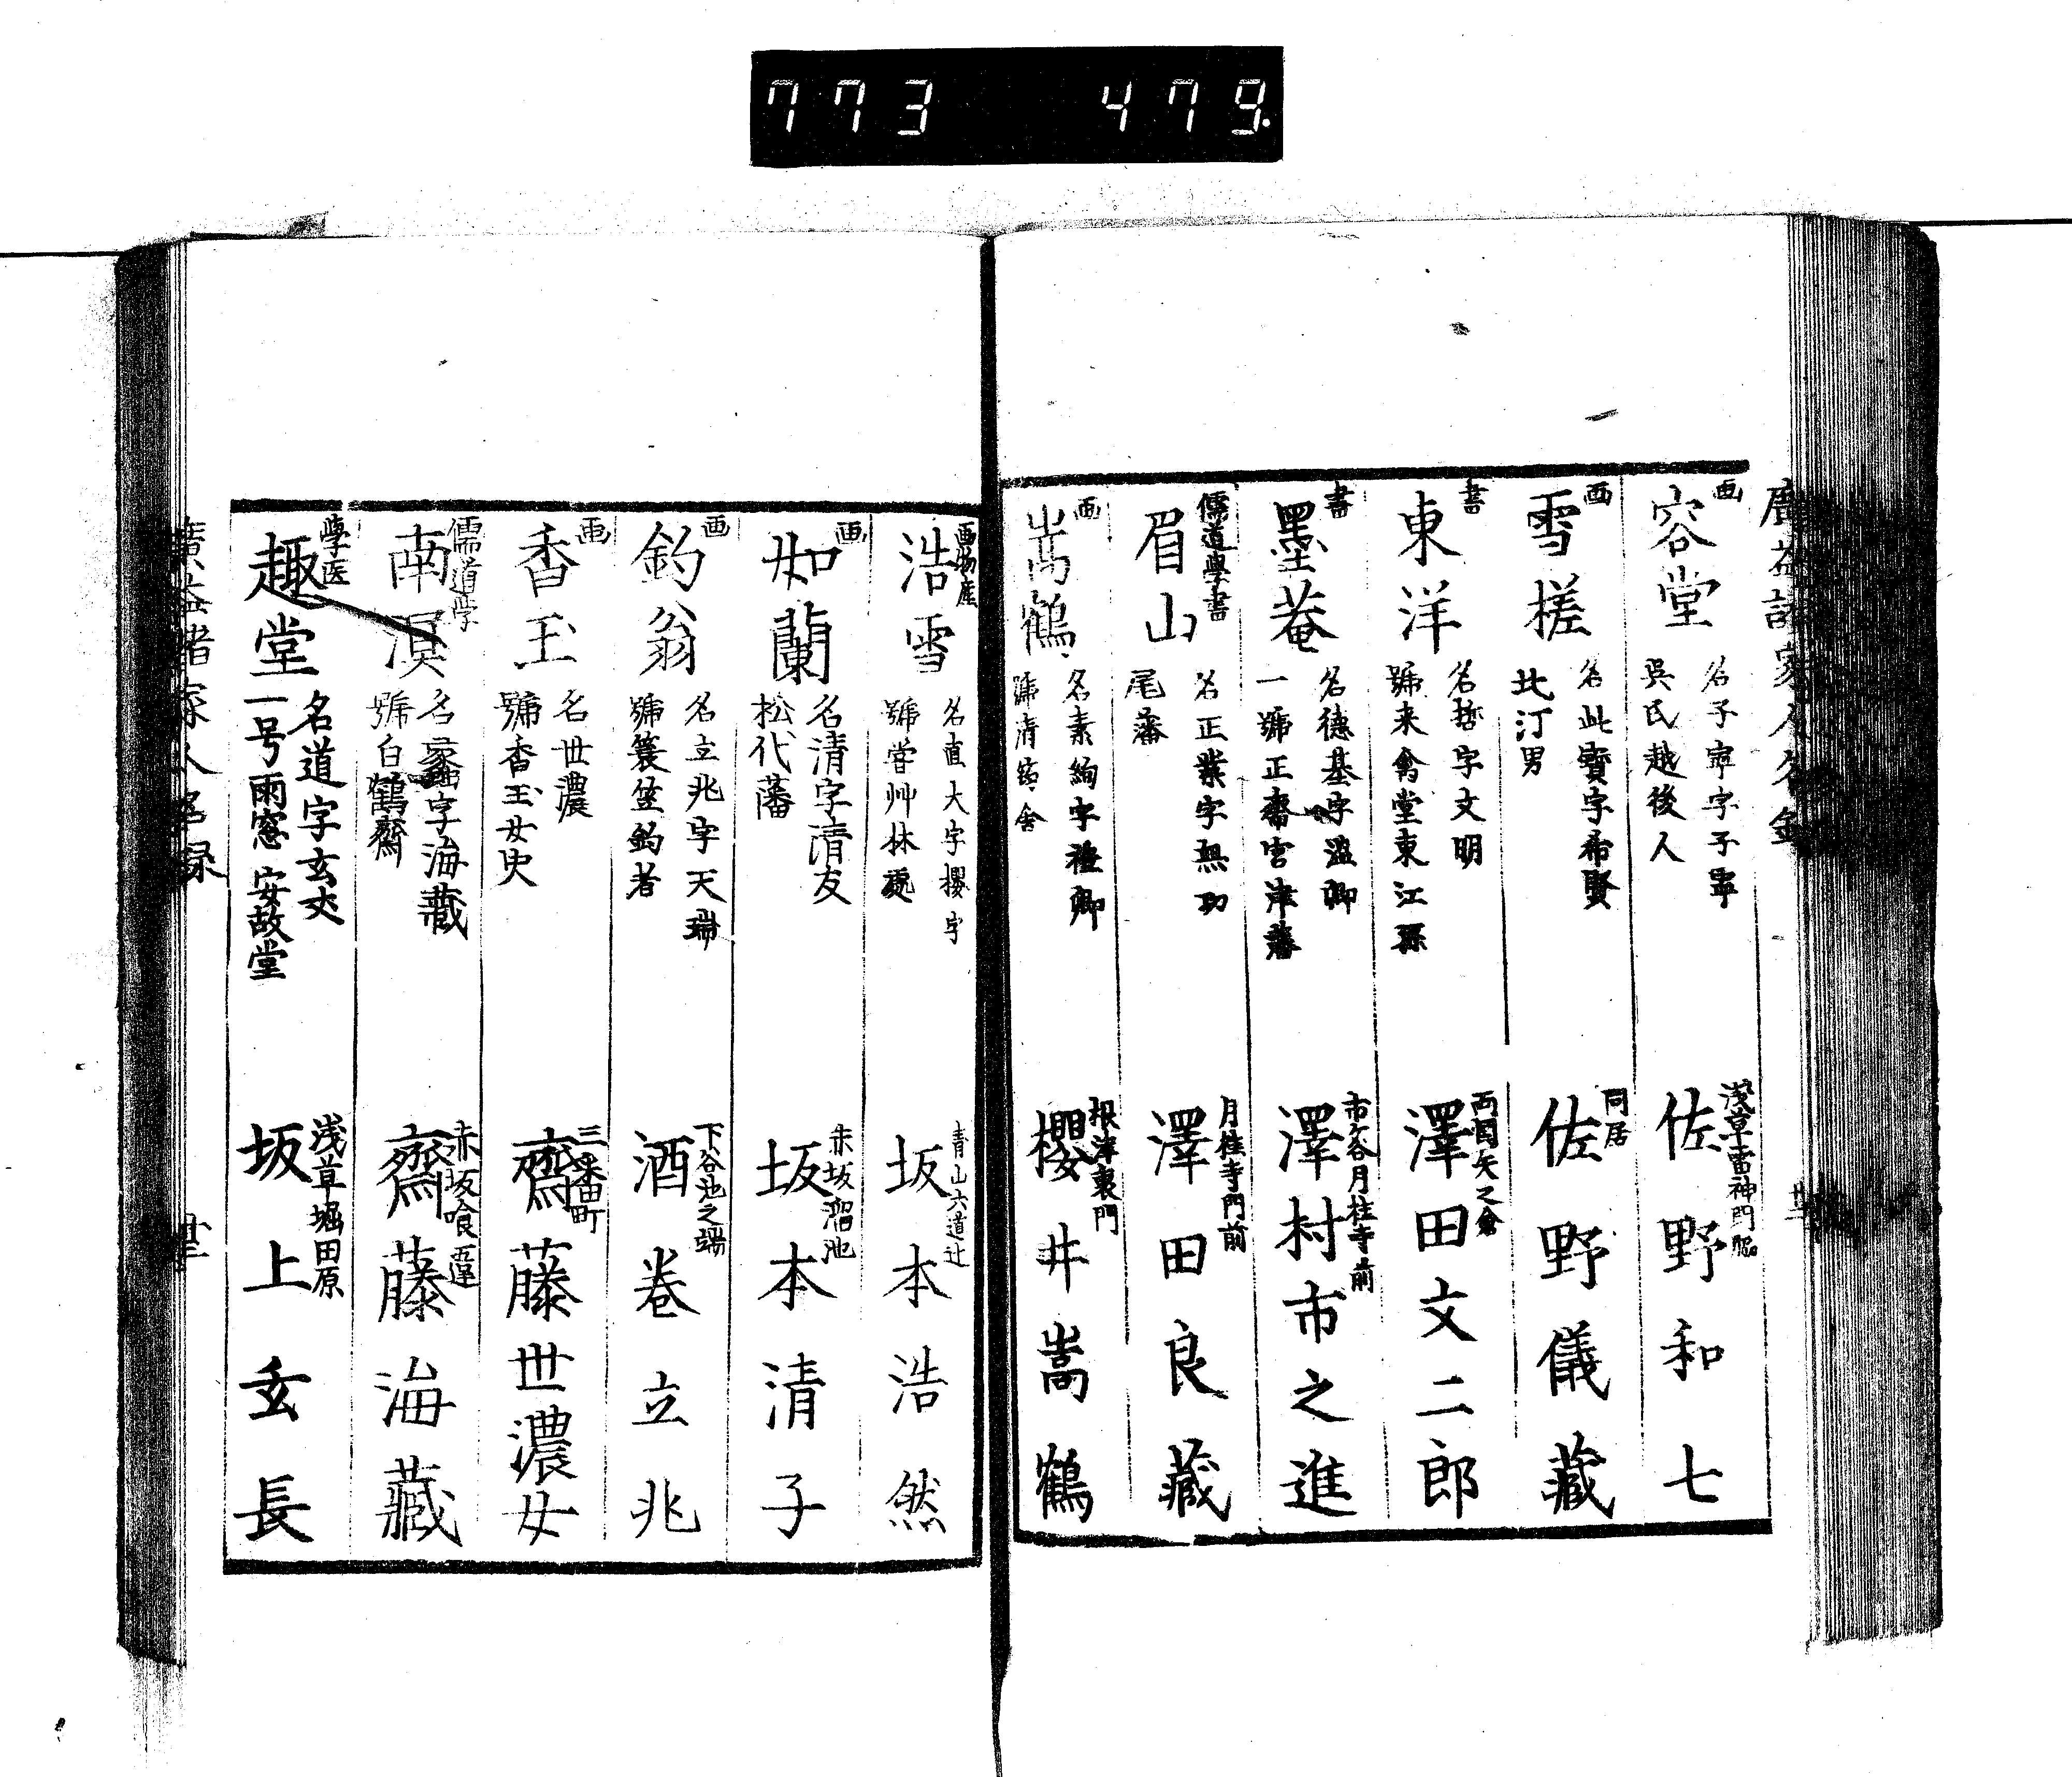 773 479.
廣益諸家人名録
画
容堂
名子寧字子寧
呉氏越後人
浅草雷神門脇
佐野和七
画
雪槎
名此寶字希賢
北汀男
同居
佐野儀藏
書
東洋
名哲字文明
號来禽堂東江孫
両国矢之倉
澤田文二郎
書
墨菴
名德基字温卿
一號正齋宮津藩
市谷月桂寺前
澤村市之進
儒道學書
眉山
名正業字無功
尾藩
月桂寺門前
澤田良藏
画
嵩鶴
名素絢字 卿
號清 舎
根津裏門
櫻井嵩鶴
画物産
浩雪
名直大字櫻宇
號嘗艸林處
青山六道辻
坂本浩然
画
如蘭
名清字清友
松代藩
赤坂溜池
坂本清子
画
釣翁
名立兆字天瑞
號簑笠釣者
下谷池之端
酒巻立兆
画
香玉
名世濃
號香玉女史
三番町
齋藤世濃女
儒道学
南溟
名 字海藏
號白鶴齋
赤坂喰違
齋藤海藏
學医
趣堂
名道字玄丈
一号雨窓 安故堂
浅草堀田原
坂上玄長
廣益諸家人名録